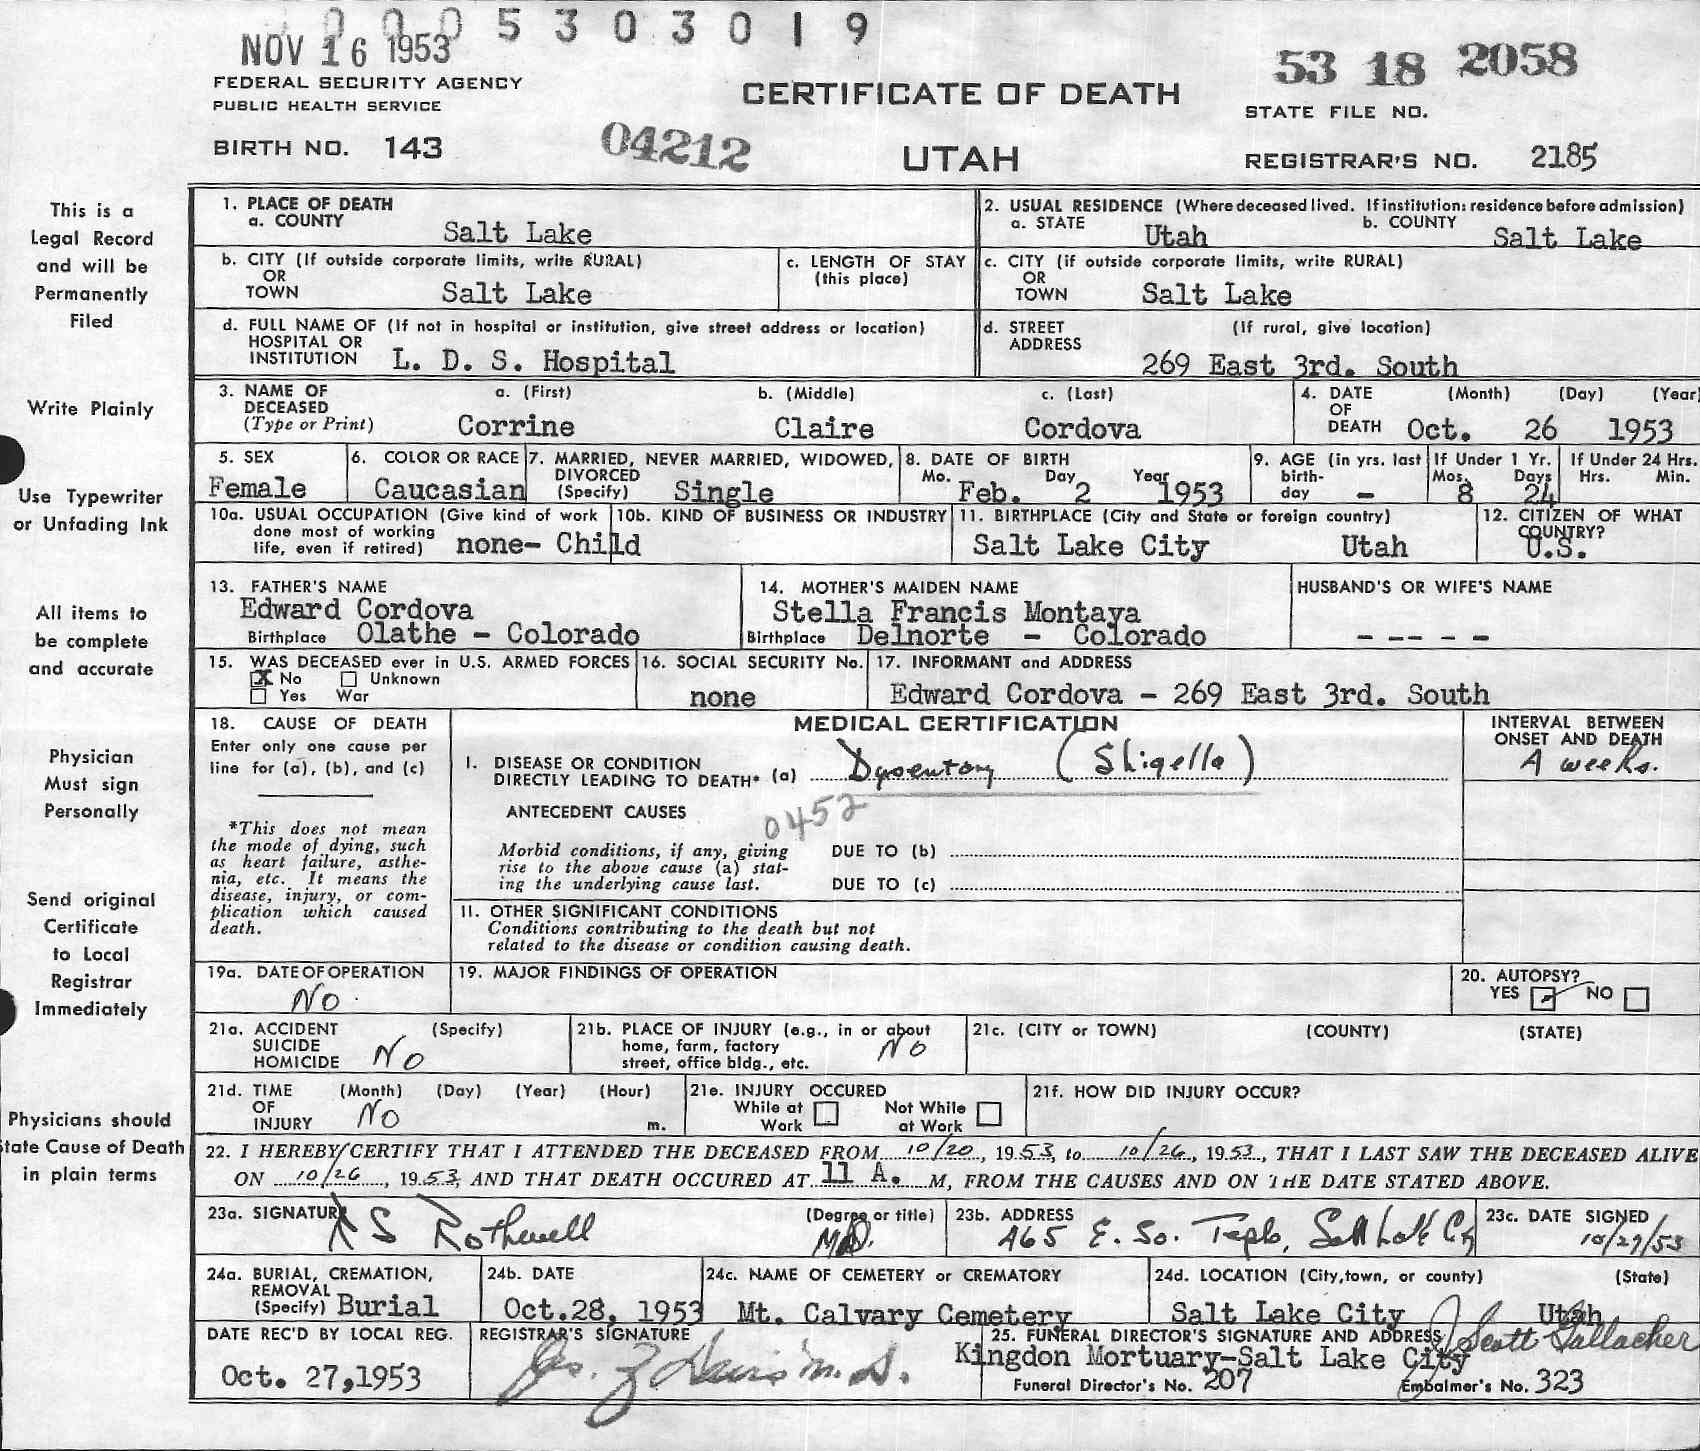 0005303019
NOV 16 1953
53 18 2058
FEDERAL SECURITY AGENCY
PUBLIC HEALTH SERVICE
CERTIFICATE OF DEATH
STATE FILE NO.
BIRTH NO. 143
04212
UTAH
REGISTRAR'S NO. 2185
This is a
Legal Record
and will be
Permanently
Filed
Write Plainly
Use Typewriter
or Unfading Ink
All items to
be complete
and accurate
Physician
Must sign
Personally
Send original
Certificate
to Local
Registrar
Immediately
Physicians should
tate Cause of Death
in plain terms
1. PLACE OF DEATH
a. COUNTY Salt Lake
2. USUAL RESIDENCE (Where deceased lived. If institution: residence before admission)
a. STATE Utah b. COUNTY Salt Lake
b. CITY (If outside corporate limits, write RURAL)
OR
TOWN Salt Lake
c. LENGTH OF STAY
(this place)
c. CITY (if outside corporate limits, write RURAL)
OR
TOWN Salt Lake
d. FULL NAME OF (If not in hospital or institution, give street address or location)
HOSPITAL OR
INSTITUTION L. D. S. Hospital
d. STREET (If rural, give location)
ADDRESS
269 East 3rd. South
3. NAME OF
DECEASED
(Type or Print)
a. (First) b. (Middle) c. (Last)
Corrine Claire Cordova
4. DATE (Month) (Day) (Year)
OF
DEATH Oct. 26 1953
5. SEX
Female
6. COLOR OR RACE
Caucasian
7. MARRIED, NEVER MARRIED, WIDOWED,
DIVORCED
(Specify) Single
8. DATE OF BIRTH
Mo. Day Year
Feb. 2 1953
9. AGE (in yrs. last
birth-
day –
If Under 1 Yr.
Mos. Days
8 24
If Under 24 Hrs.
Hrs. Min.
10a. USUAL OCCUPATION (Give kind of work
done most of working
life, even if retired) none- Child
10b. KIND OF BUSINESS OR INDUSTRY
11. BIRTHPLACE (City and State or foreign country)
Salt Lake City Utah
12. CITIZEN OF WHAT
COUNTRY?
U.S.
13. FATHER'S NAME
Edward Cordova
Birthplace Olathe - Colorado
14. MOTHER'S MAIDEN NAME
Stella Francis Montaya
Birthplace Delnorte - Colorado
HUSBAND'S OR WIFE'S NAME
- -- - -
15. WAS DECEASED ever in U.S. ARMED FORCES
X No Unknown
Yes War
16. SOCIAL SECURITY No.
none
17. INFORMANT and ADDRESS
Edward Cordova - 269 East 3rd. South
18. CAUSE OF DEATH
Enter only one cause per
line for (a), (b), and (c)
*This does not mean
the mode of dying, such
as heart failure, asthe-
nia, etc. It means the
disease, injury, or com-
plication which caused
death.
MEDICAL CERTIFICATION
INTERVAL BETWEEN
ONSET AND DEATH
I. DISEASE OR CONDITION
DIRECTLY LEADING TO DEATH* (a) Dysentery (Shigella)
weeks.
ANTECEDENT CAUSES
0452
Morbid conditions, if any, giving
rise to the above cause (a) stat-
ing the underlying cause last.
DUE TO (b)
DUE TO (c)
11. OTHER SIGNIFICANT CONDITIONS
Conditions contributing to the death but not
related to the disease or condition causing death.
19a. DATE OF OPERATION
No
19. MAJOR FINDINGS OF OPERATION
20. AUTOPSY?
YES NO
21a. ACCIDENT (Specify)
SUICIDE
HOMICIDE No
21b. PLACE OF INJURY (e.g., in or about
home, farm, factory
street, office bldg., etc. No
21c. (CITY or TOWN) (COUNTY) (STATE)
21d. TIME (Month) (Day) (Year) (Hour)
OF
INJURY No m.
21e. INJURY OCCURED
While at Not While
Work at Work
21f. HOW DID INJURY OCCUR?
22. I HEREBY CERTIFY THAT I ATTENDED THE DECEASED FROM 10/20, 1953, to 10/26, 1953, THAT I LAST SAW THE DECEASED ALIVE
ON 10/26, 1953, AND THAT DEATH OCCURED AT 11 A. M, FROM THE CAUSES AND ON THE DATE STATED ABOVE.
23a. SIGNATURE (Degree or title)
S Rothwell M.D.
23b. ADDRESS
465 E. So. Temple, Salt Lake City
23c. DATE SIGNED
10/27/53
24a. BURIAL, CREMATION,
REMOVAL
(Specify) Burial
24b. DATE
Oct.28, 1953
24c. NAME OF CEMETERY or CREMATORY
Mt. Calvary Cemetery
24d. LOCATION (City,town, or county) (State)
Salt Lake City Utah
DATE REC'D BY LOCAL REG.
Oct. 27,1953
REGISTRAR'S SIGNATURE
Jas. Z Davis M.D.
25. FUNERAL DIRECTOR'S SIGNATURE AND ADDRESS
J Scott Gallacher
Kingdon Mortuary-Salt Lake City
Funeral Director's No. 207 Embalmer's No. 323